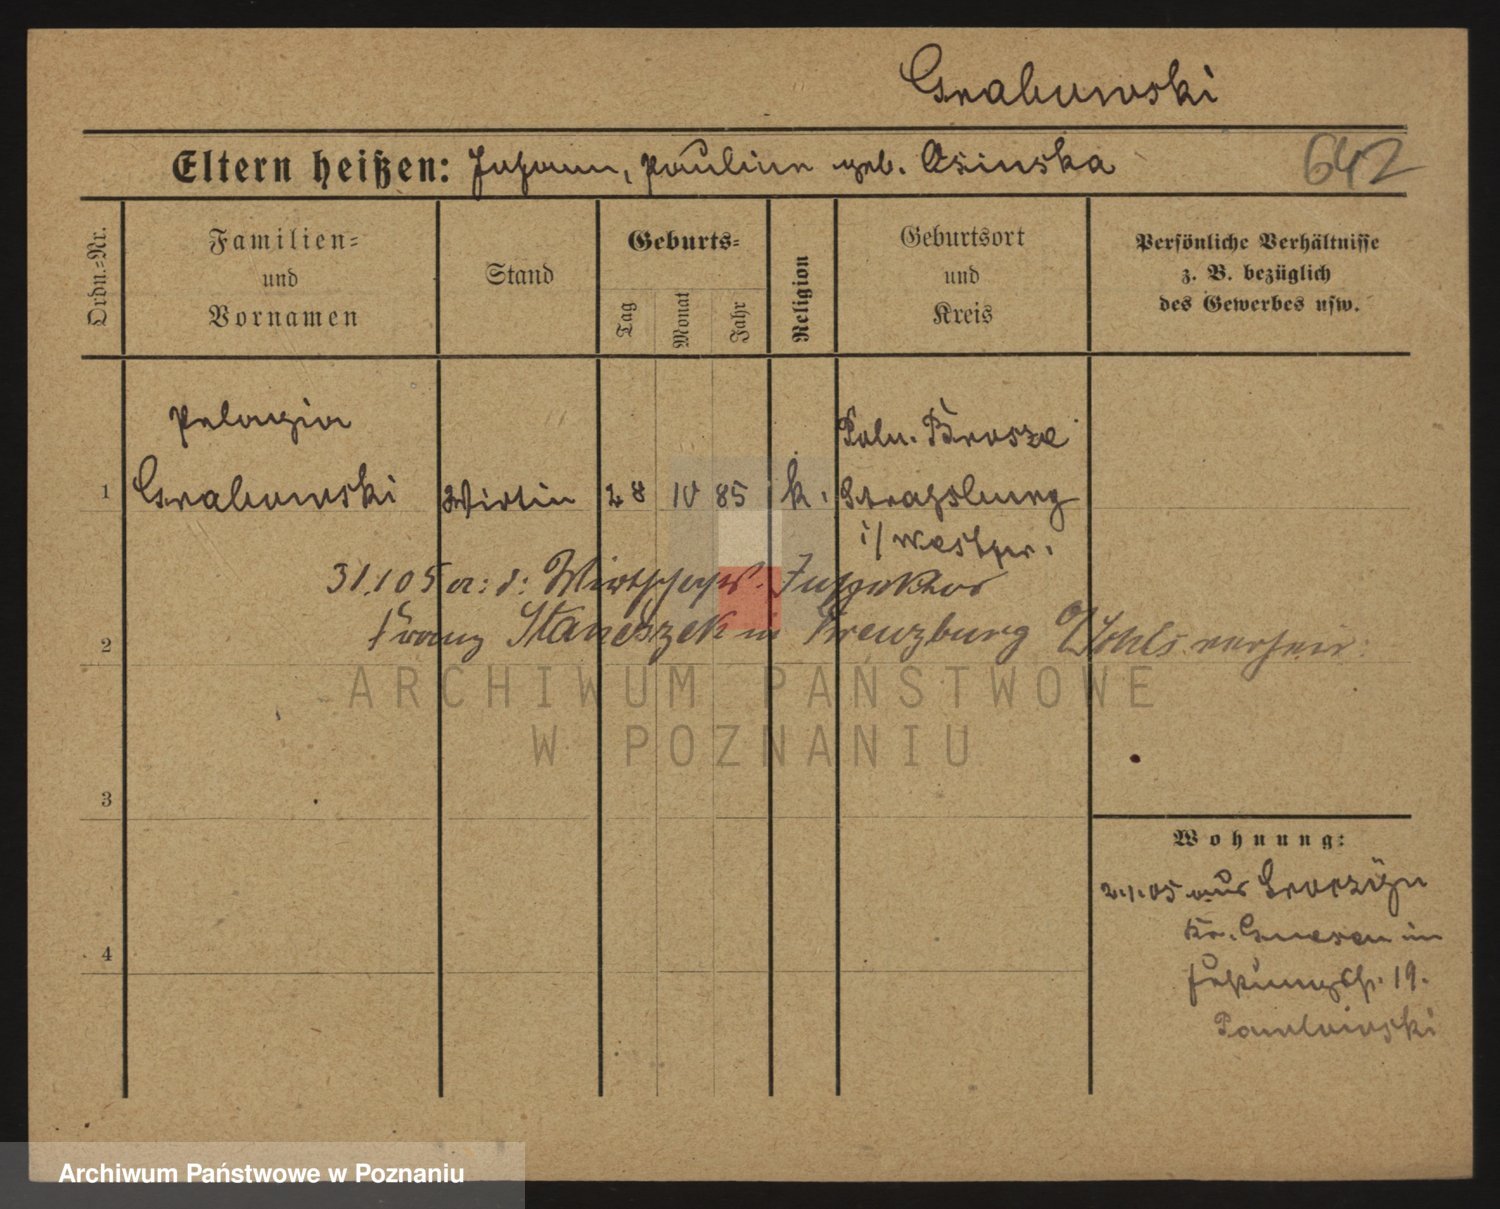 Grabowski
Eltern heißen: Johann, Pauline geb. Osinska
642
Ordn.-Nr.
Familien-
und
Vornamen
Stand
Geburts-
Tag
Monat
Jahr
Religion
Geburtsort
und
Kreis
Persönliche Verhältnisse
z. B. bezüglich
des Gewerbes usw.
Pelagia
Poln. Brosze
1 Grabowski Wirtin 28 10 85 k. Straßburg
i/ Westpr.
31.1 05 a: d: Wirtschafts-Inspektor
Franz Staneszek in Kreuzburg verheir:
2
ARCHIWUM PAŃSTWOWE
W POZNANIU
3
Wohnung:
2.1.05 aus
Kr. Gnesen in
4
19.
Pawlowski
Archiwum Państwowe w Poznaniu